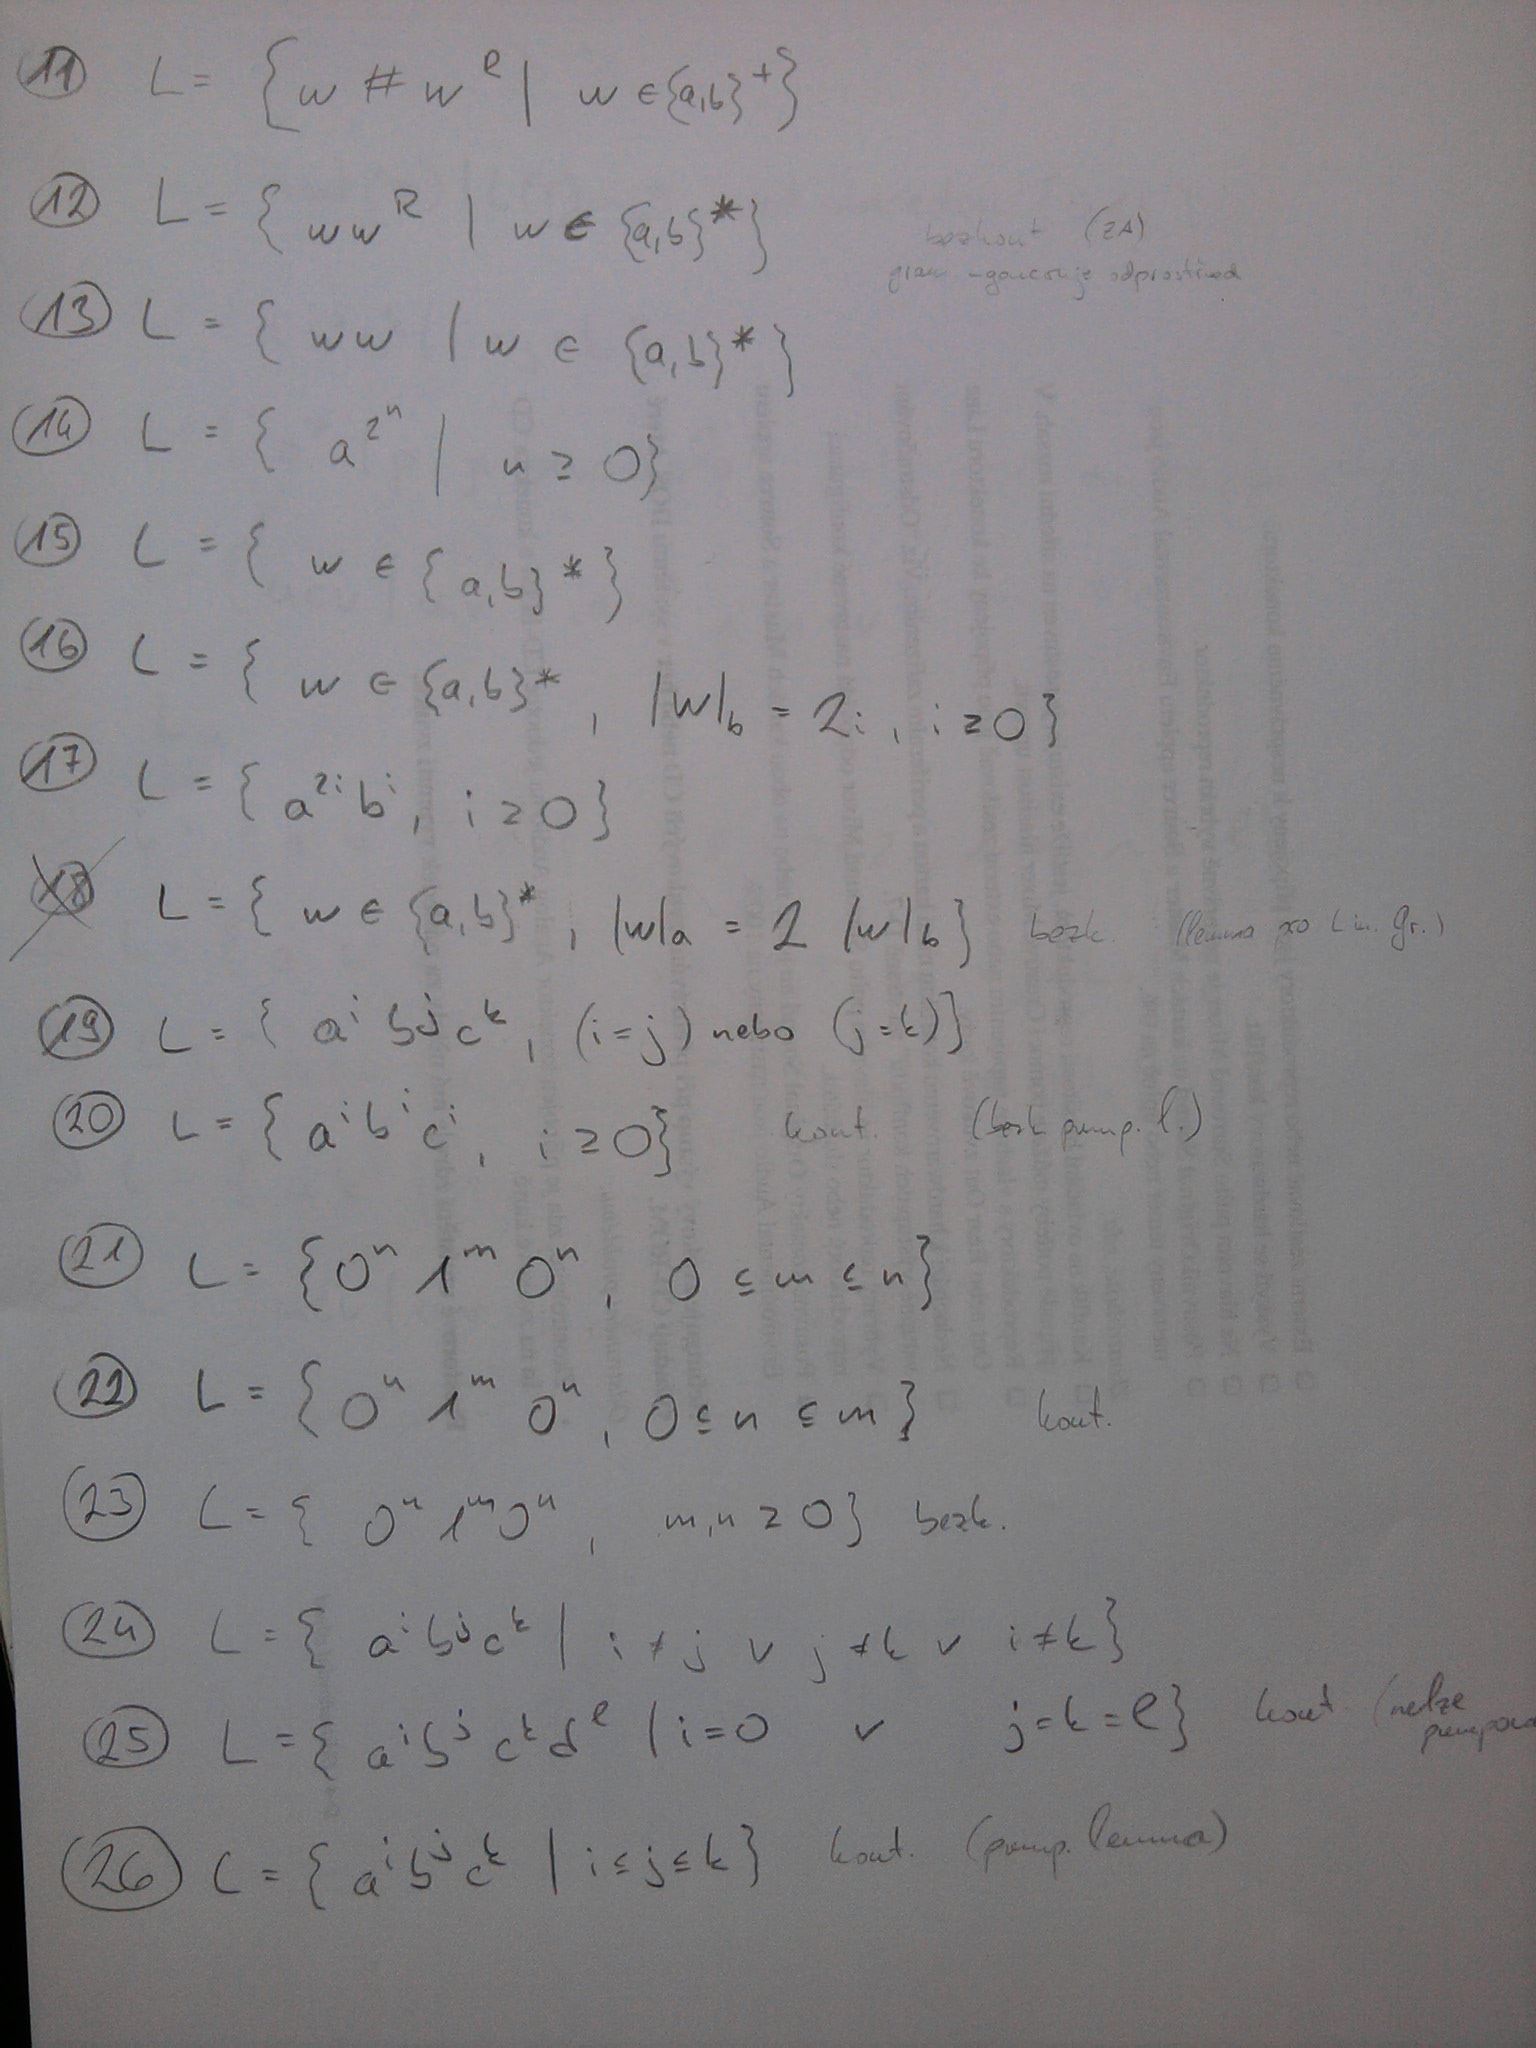 11 L = { w # w^R | w ∈ {a,b}^+ }
12 L = { ww^R | w ∈ {a,b}* } bezkont (ZA)
gram odprostřed
13 L = { ww | w ∈ {a,b}* }
14 L = { a^2^n | n ≥ 0 }
15 L = { w ∈ {a,b}* }
16 L = { w ∈ {a,b}*, |w|_b = 2i, i ≥ 0 }
17 L = { a^2i b^i, i ≥ 0 }
18 L = { w ∈ {a,b}*, |w|_a = 2 |w|_b } bezk. (lemma pro Lin. Gr.)
19 L = { a^i b^j c^k, (i=j) nebo (j=k) }
20 L = { a^i b^i c^i, i ≥ 0 } kont. (bezk pump. l.)
21 L = { 0^n 1^m 0^n, 0 ≤ m ≤ n }
22 L = { 0^n 1^m 0^n, 0 ≤ n ≤ m } kont.
23 L = { 0^n 1^m 0^n, m,n ≥ 0 } bezk.
24 L = { a^i b^j c^k | i ≠ j ∨ j ≠ k ∨ i ≠ k }
25 L = { a^i b^j c^k d^l | i=0 ∨ j=k=l } kont. (nelze
pumpova
26 L = { a^i b^j c^k | i ≤ j ≤ k } kont. (pump. lemma)